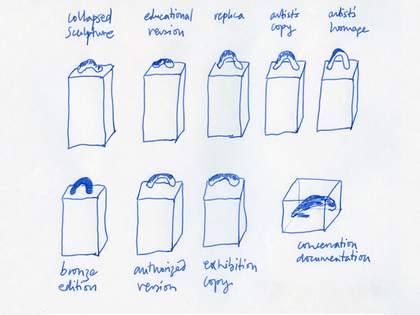 collapsed
sculpture
educational
version
replica
artist's
copy
artist's
homage
bronze
edition
authorized
version
exhibition
copy
conservation
documentation